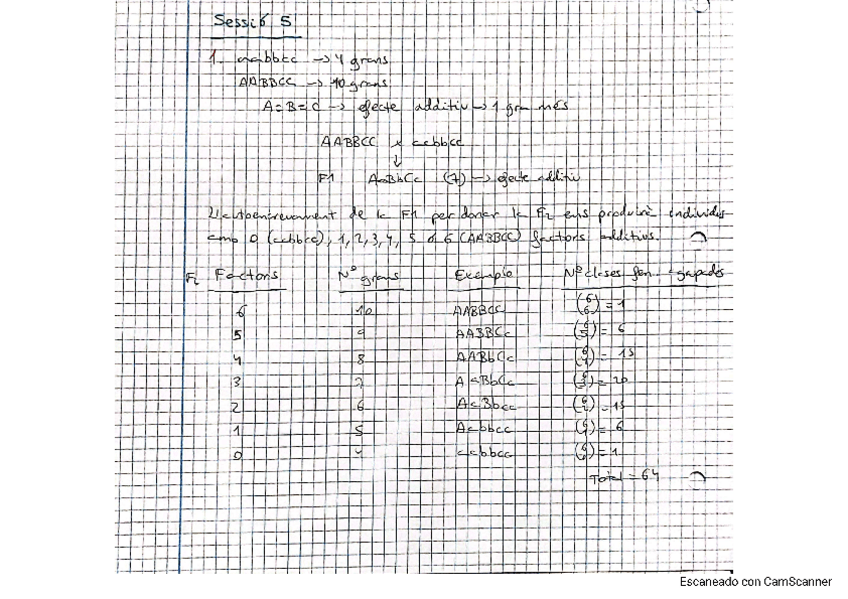 Sessió 5
1. aabbcc → 4 grans
AABBCC → 10 grans
A=B=C → efecte additiu → 1 gra més
AABBCC x aabbcc
↓
F1 AaBbCc (7) → efecte additiu
L'autoencreuament de la F1 per donar la F2 ens produirà individus
amb 0 (aabbcc), 1, 2, 3, 4, 5 o 6 (AABBCC) factors additius.
F2 Factors Nº grans Exemple Nº classes fen. agrupades
6 10 AABBCC (6 6) = 1
5 9 AABBCc (6 5) = 6
4 8 AABbCc (6 4) = 15
3 7 AaBbCc (6 3) = 20
2 6 AaBbcc (6 2) = 15
1 5 Aabbcc (6 1) = 6
0 4 aabbcc (6 0) = 1
Total = 64
Escaneado con CamScanner